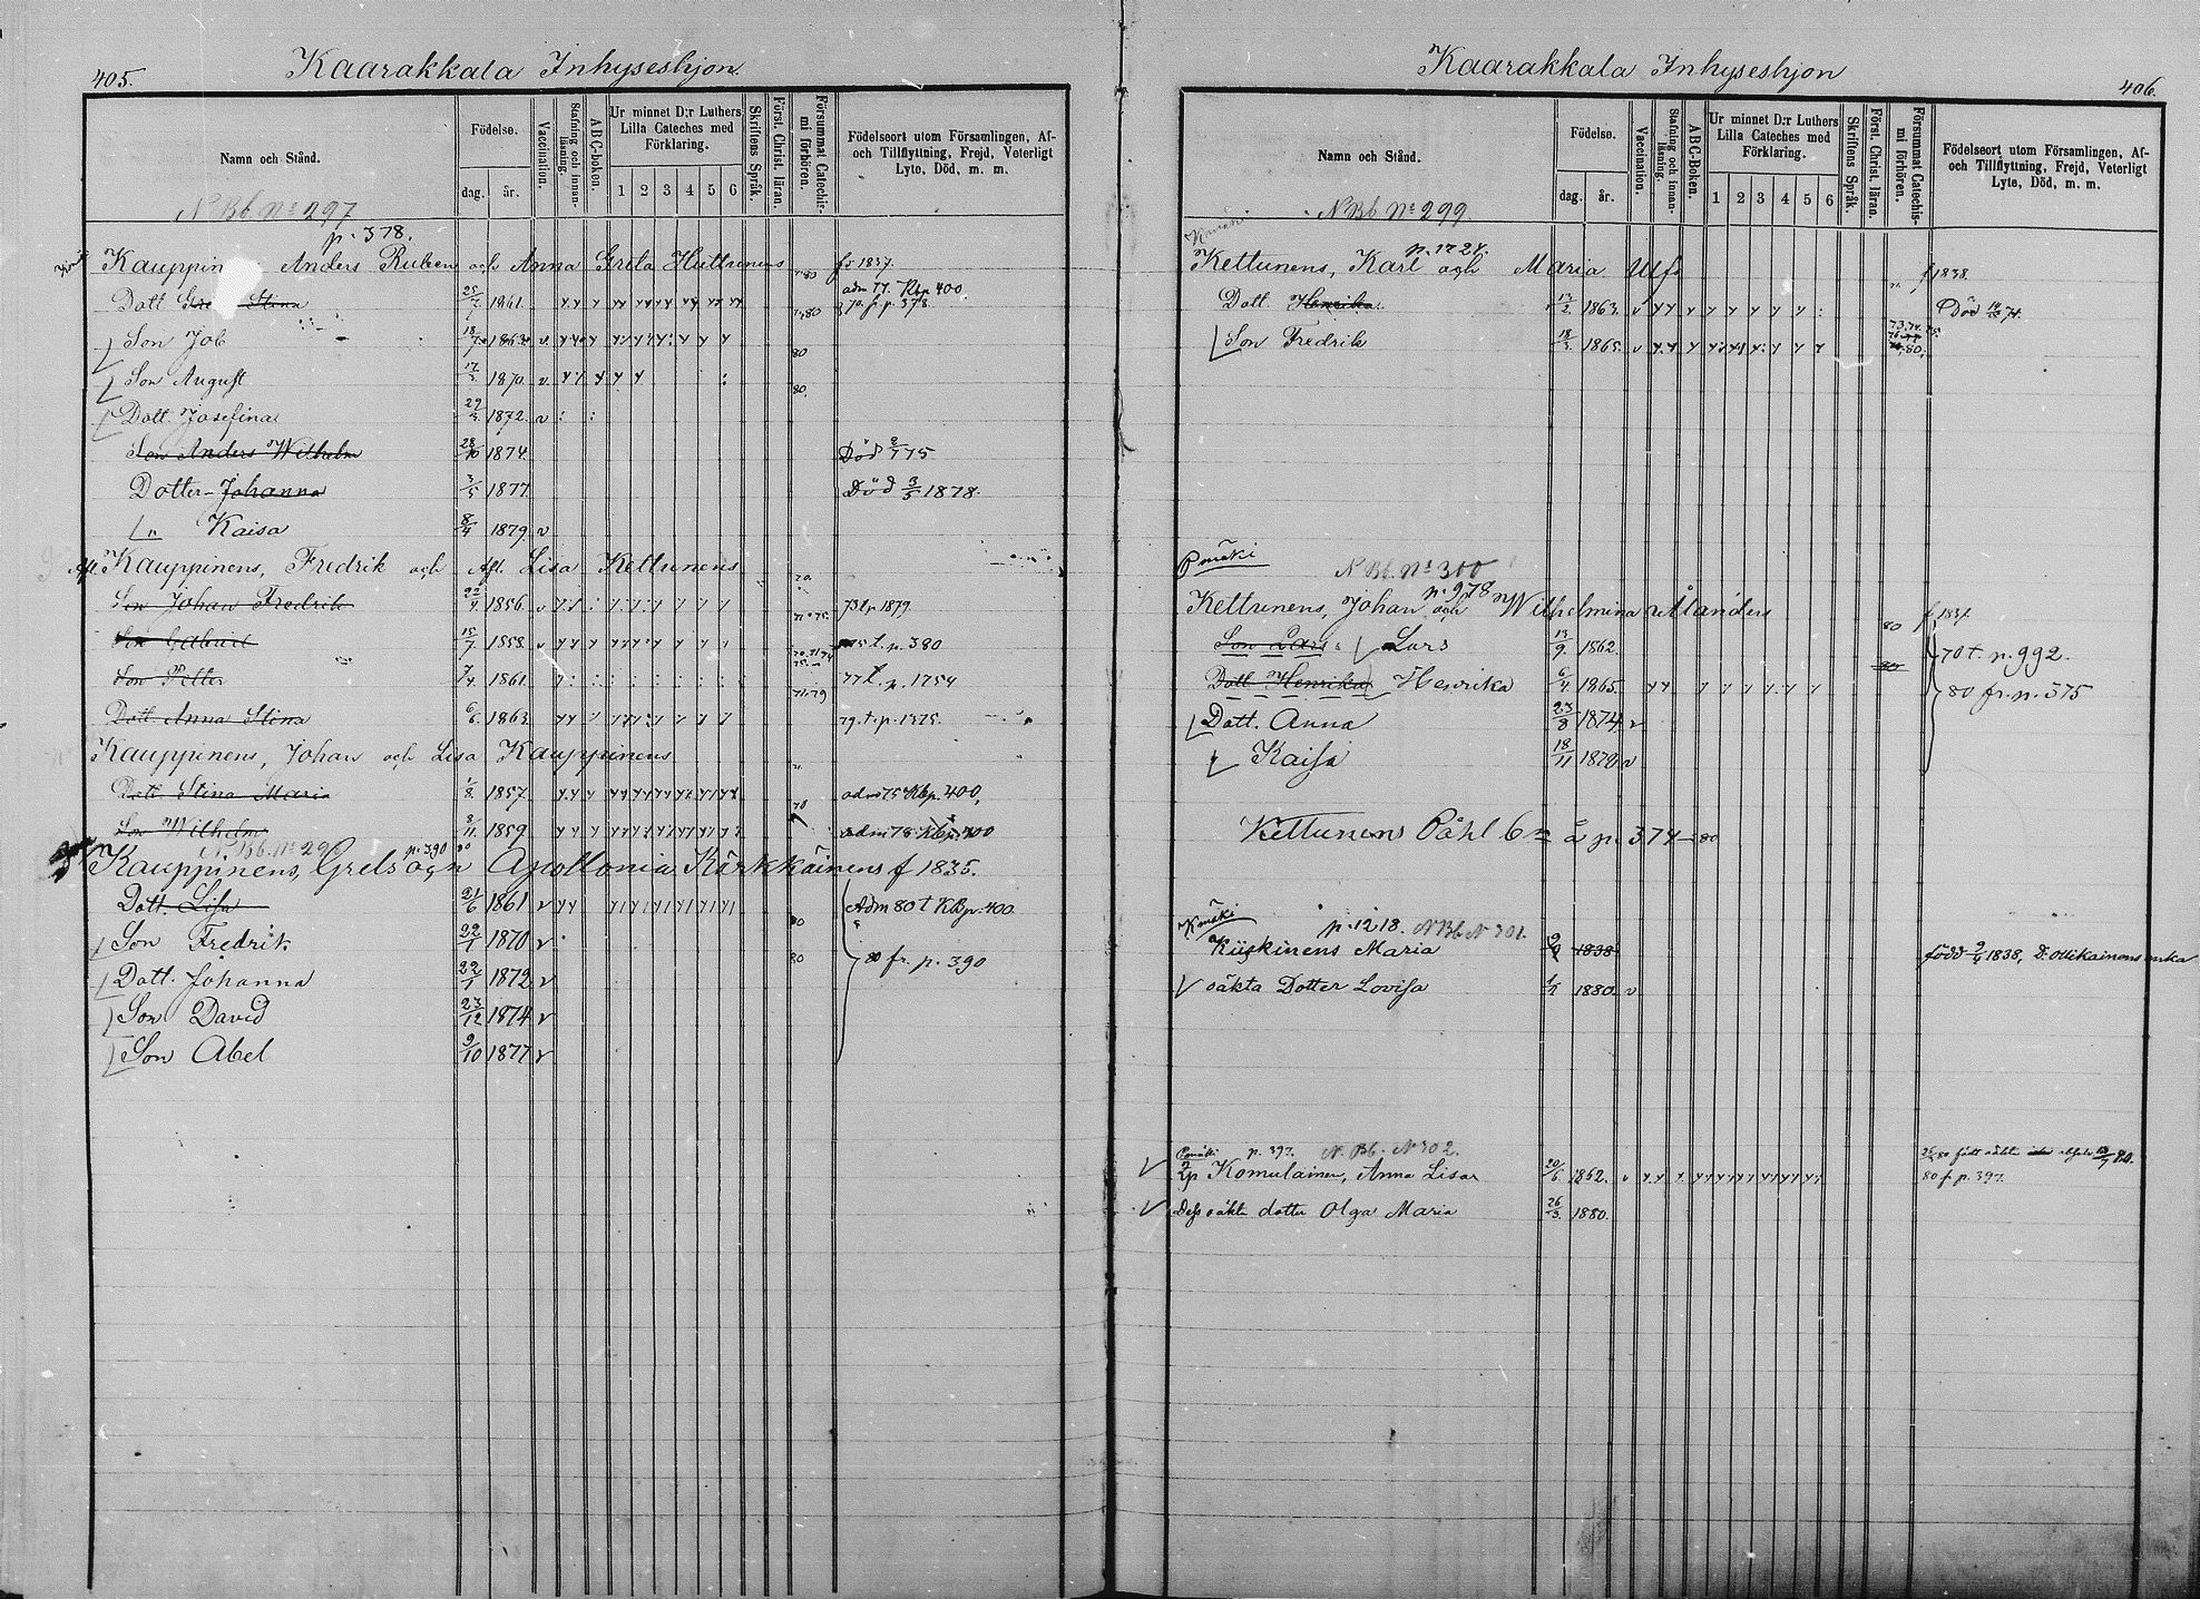 405.
Kaarakkala Inhyseshjon.
Namn och Stånd.
Födelse.
dag.
år.
Vaccination.
Stafning och innanläsning.
ABC-boken.
Ur minnet D:r Luthers Lilla Cateches med Förklaring.
1 2 3 4 5 6
Skriftens Språk.
Först. Christ. läran.
Försummat Catechismi förhören.
Födelseort utom Församlingen, Af- och Tillflyttning, Frejd, Veterligt Lyte, Död, m. m.
N Bb. No 297
p. 378.
Kauppin Anders Ruben och Anna Greta Huttunens 80 1837.
Dott Stina 25/7 1861. 80 adm 77. Kbp 400
70. f. p. 378.
Son Job 18/7 1863. v 80
Son August 17/3 1870. v 80.
Dott. Josefina 29/3 1872. v
Son Anders Wilhelm 28/10 1874. Död 75
Dotter Johanna 3/5 1877. Död 3/5 1878.
" Kaisa 8/4 1879. v
Afl. Kauppinens, Fredrik och Afl. Lisa Kettunens
Son Johan Fredrik 22/4 1856. v 1879.
Son Gabriel 15/7 1858. v 75 t. p. 380
Son Petter 7/4 1861. 71.79 77 t. p. 1754
Dott. Anna Stina 6/6 1863. 79. t. p. 1375.
Kauppinens, Johan och Lisa Kauppinens
Dott. Stina Maria 1/8 1857. 70 adm 75 Kbp. 400,
Son Wilhelm 8/11 1859. adm 78 Kbp. 400
N. Bb. No 29 p. 390
Kauppinens, Grels och Apollonia Kärkkäinens f 1835.
Dott. Lisa 21/6 1861 v 80 Adm 80 t KBp. 400.
Son Fredrik 22/1 1870 v 80 80 fr. p. 390
Dott. Johanna 22/1 1872 v
Son David 23/12 1874 v
Son Abel 9/10 1877 v
Kaarakkala Inhyseshjon
406.
Namn och Stånd.
Födelse.
dag.
år.
Vaccination.
Stafning och innanläsning.
ABC-Boken.
Ur minnet D:r Luthers Lilla Cateches med Förklaring.
1 2 3 4 5 6
Skriftens Språk.
Först. Christ. läran.
Försummat Catechismi förhören.
Födelseort utom Församlingen, Af- och Tillflyttning, Frejd, Veterligt Lyte, Död, m. m.
N Bb No 299.
p. 1724.
Kettunens, Karl och Maria f 1838.
Dott. Henrika 13/2 1863. v Död 74.
Son Fredrik 18/3 1865. v 80.
Pmäki N Bb. No 300
p. 978
Kettunens, Johan och Wilhelmina Ålanders 80 f 1837.
Son Lars Lars 13/9 1862. 70 t. p. 992.
Dott. Henrika Henrika 6/4 1865. 80 fr. p. 375
Dott. Anna 23/8 1874 v
Kaisa 18/11 1879 v
Kettunens Påhl 6= å p. 374 – 80
Kmäki p. 1218. N Bb N 301.
Kiiskinens Maria 1838 född 2/4 1838, D. Ollikainens enka
oäkta Dotter Lovisa 1880. v
Pmäki p. 397. N. Bb. N 302.
Komulainen, Anna Lisa 20/6 1852. v 80 fått oäkta
80 f. p. 397.
Dess oäkta dotter Olga Maria 26/3 1880.